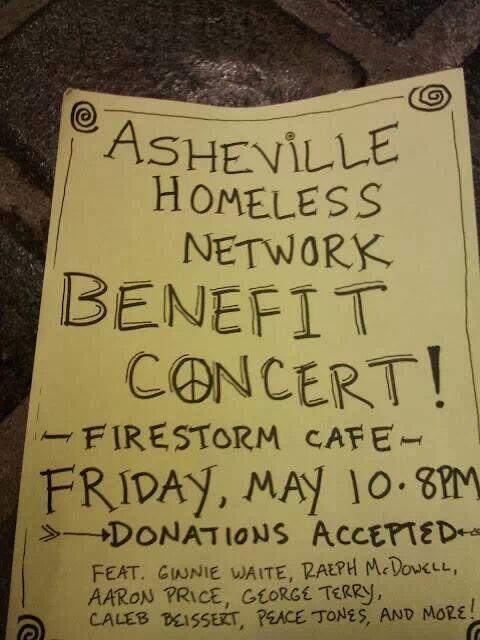 ASHEVILLE
HOMELESS
NETWORK
BENEFIT
CONCERT!
- FIRESTORM CAFE -
FRIDAY, MAY 10 · 8PM
DONATIONS ACCEPTED
FEAT. GINNIE WAITE, RALPH McDOWELL,
AARON PRICE, GEORGE TERRY,
CALEB BEISSERT, PEACE JONES, AND MORE!